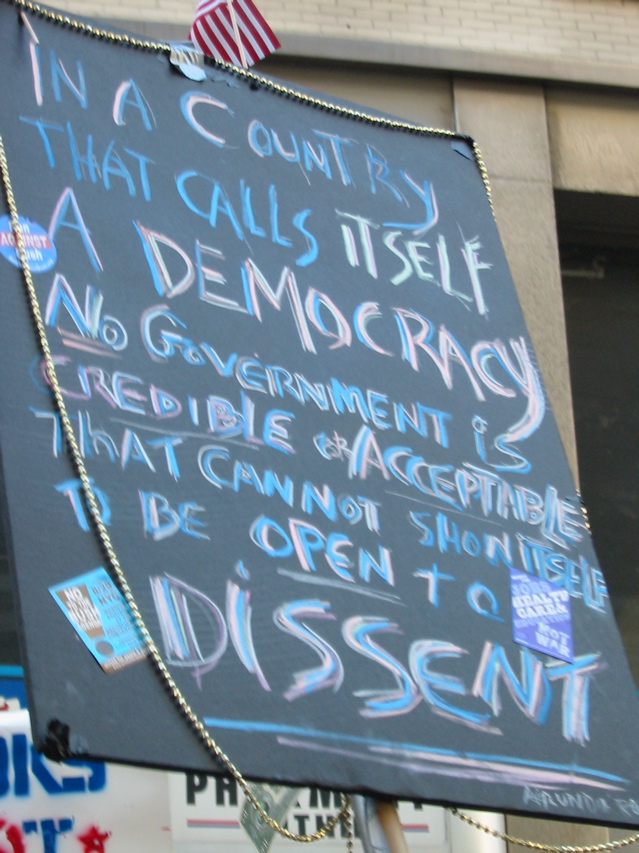 IN A COUNTRY
THAT CALLS ITSELF
A DEMOCRACY
NO GOVERNMENT is
CREDIBLE OR ACCEPTABLE
THAT CANNOT SHOW ITSELF
TO BE OPEN TO
DISSENT
AGAINST
NO
JOBS
HEALTH
CARE &
NOT
WAR